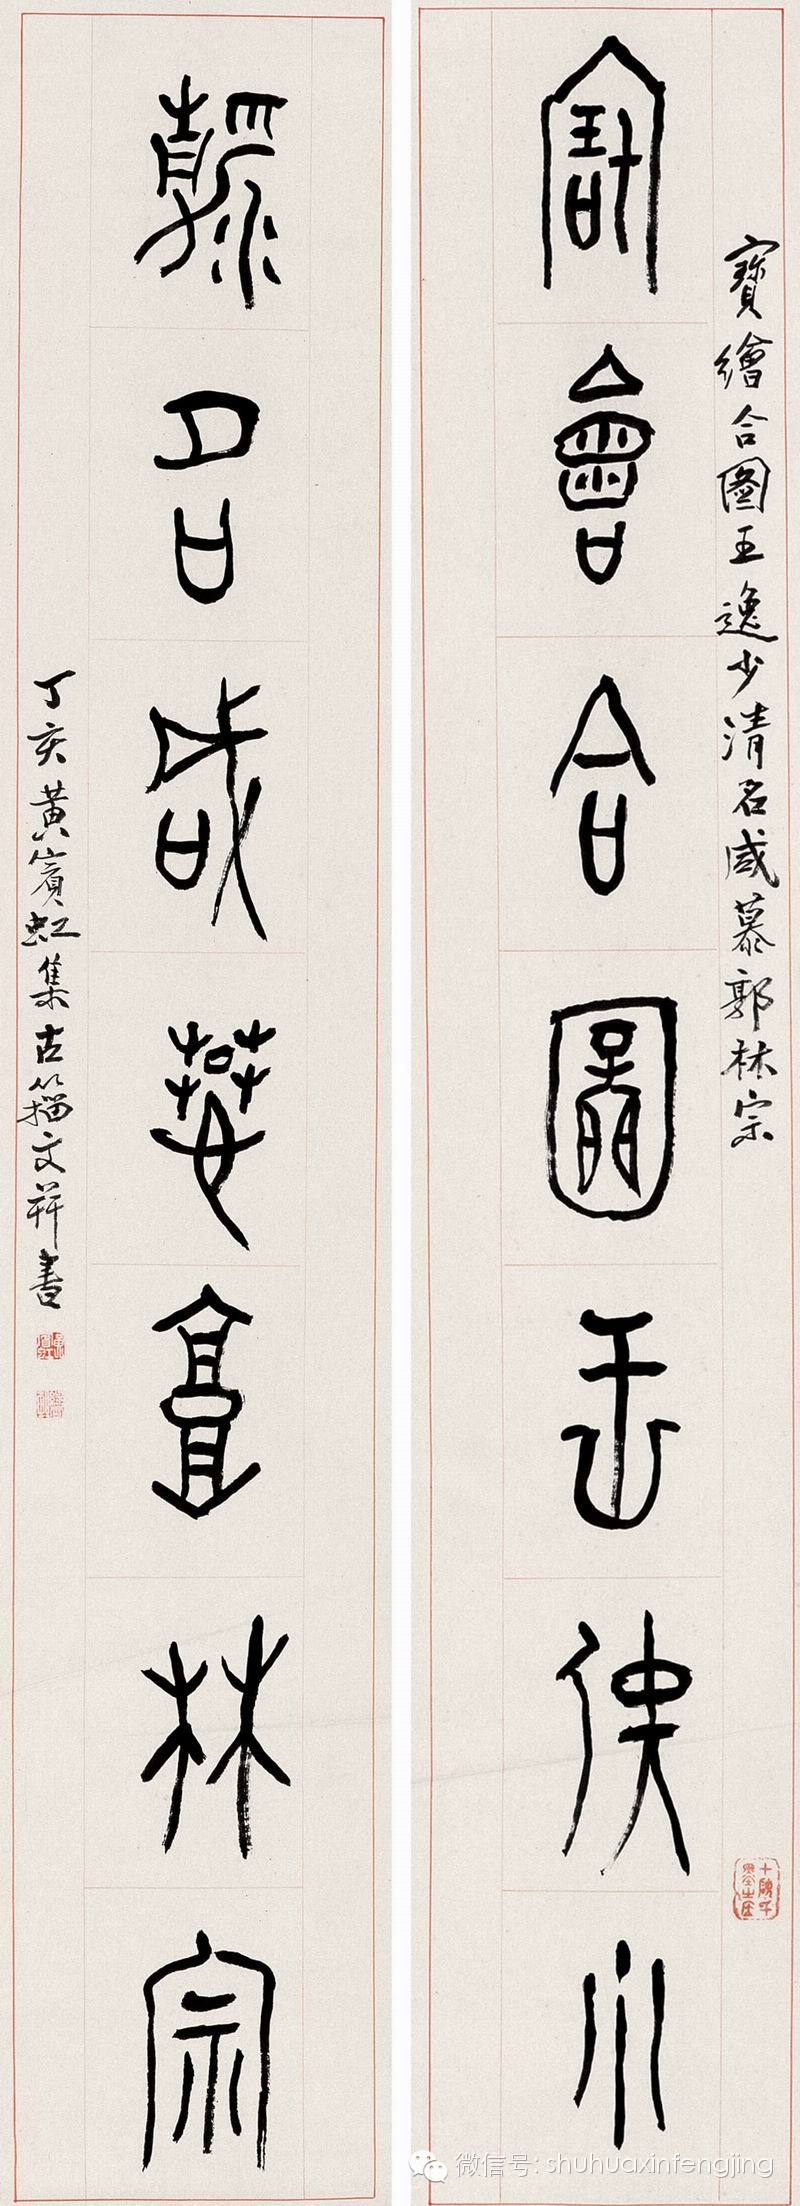 寶繪合圖王逸少清名咸慕郭林宗
寶繪合圖王逸少
清名咸慕郭林宗
丁亥黃賓虹集古籀文并書
微信号: shuhuaxinfengjing